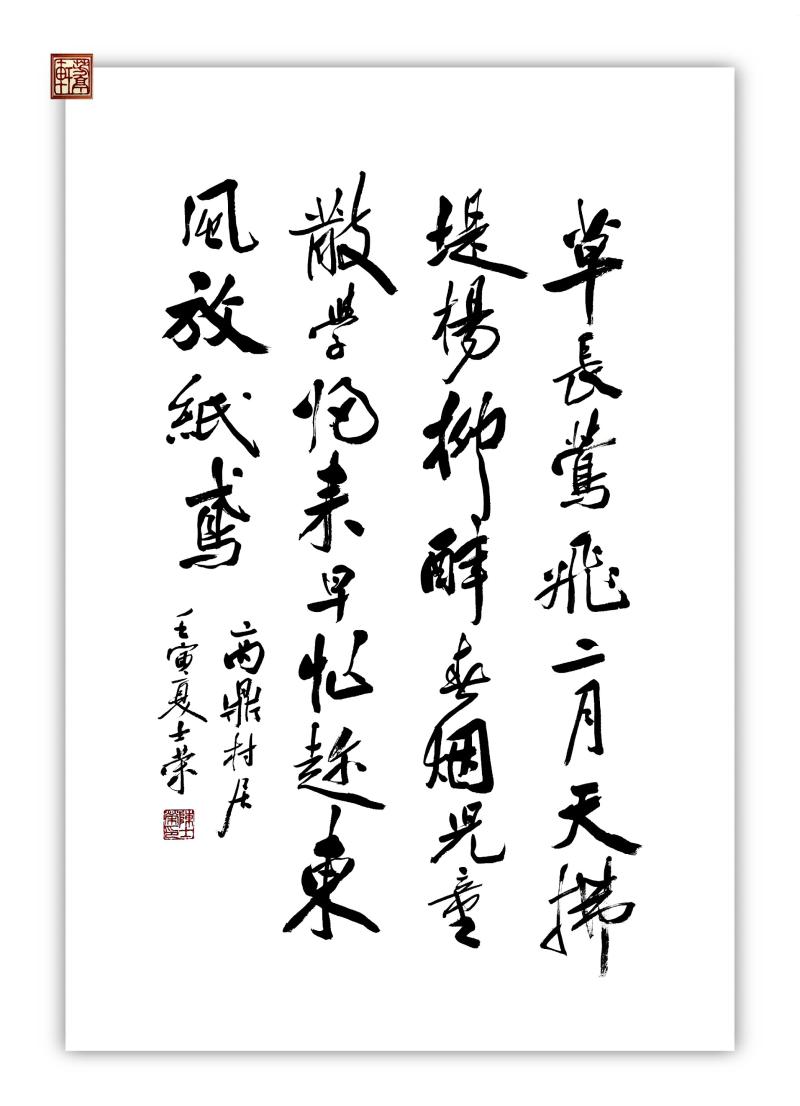 草長鶯飛二月天拂
堤楊柳醉春烟兒童
散學歸来早忙趁東
風放紙鳶
高鼎村居
壬寅夏士荣
陳士榮印